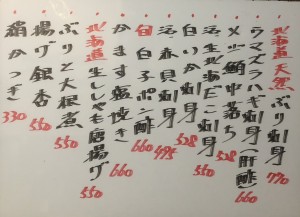 北海道 天然ぶり刺身 770
ウマズラハギ刺身(肝酢) 660
メジ鮪中落ち 528
活〆生北海だこ刺身 550
白いか刺身 528
活赤貝刺身 495
旬 白子ポン酢 660
かます塩焼き 660
北海道 生ししゃも唐揚げ 550
ぶりと大根煮 550
揚げ銀杏 550
絹かつぎ 330